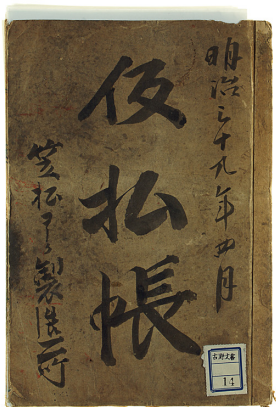 明治三十九年四月
仮払帳
笠松製造所
文書
14